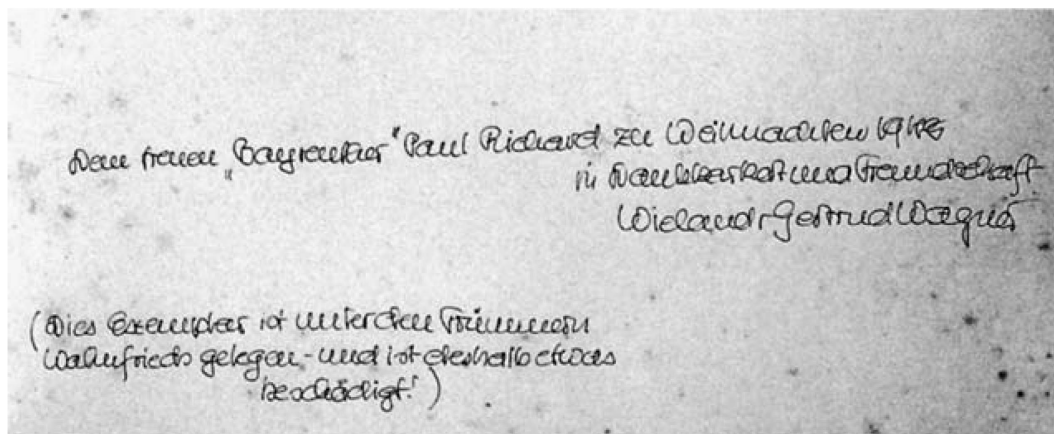 Dem treuen „Bayreuther" Paul Richard zu Weihnachten 1948
in Dankbarkeit und Freundschaft
Wieland + Gertrud Wagner
(Dies Exemplar ist unter den Trümmern
Wahnfrieds gelegen - und ist deshalb etwas
beschädigt!)